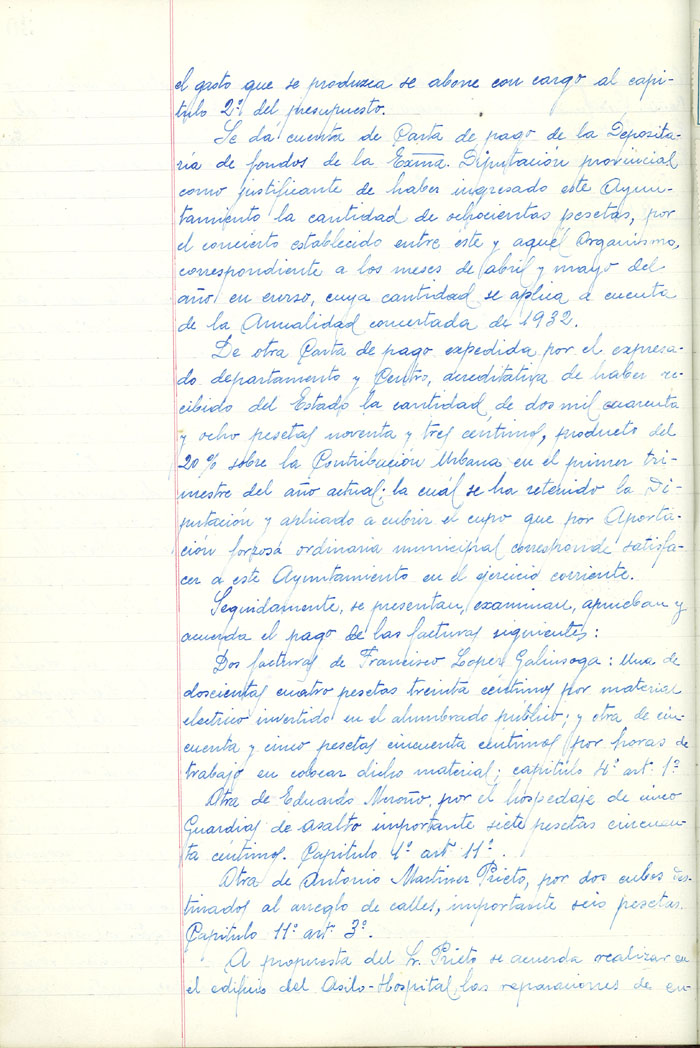 el gasto que se produzca se abone con cargo al capí-
tulo 2º del presupuesto.
Se da cuenta de Carta de pago de la Deposita-
ría de fondos de la Exma. Diputación provincial
como justificante de haber ingresado este Ayun-
tamiento la cantidad de ochocientas pesetas, por
el concierto establecido entre este y aquel Organismo,
correspondiente a los meses de abril y mayo del
año en curso, cuya cantidad se aplica a cuenta
de la Anualidad concertada de 1932.
De otra Carta de pago expedida por el expresa-
do departamento y Centro, acreditativa de haber re-
cibido del Estado la cantidad de dos mil cuarenta
y ocho pesetas noventa y tres céntimos, producto del
20% sobre la Contribución Urbana en el primer tri-
mestre del año actual; la cuál se ha retenido la Di-
putación y aplicado a cubrir el cupo que por Aporta-
ción forzosa ordinaria municipal corresponde satisfa-
cer a este Ayuntamiento en el ejercicio corriente.
Seguidamente, se presentan, examinan, aprueban y
acuerda el pago de las facturas siguientes:
Dos facturas de Francisco Lopez Galinsoga: Una de
doscientas cuatro pesetas treinta céntimos por material
electrico invertido en el alumbrado público; y otra de cin-
cuenta y cinco pesetas cincuenta centimos por horas de
trabajo en colocar dicho material; capitulo 4º artº 1º
Otra de Eduardo Meroño, por el hospedaje de cinco
Guardias de Asalto importante siete pesetas cincuen-
ta céntimos. Capitulo 1º artº 11º.
Otra de Antonio Martinez Prieto, por dos cubos des-
tinados al arreglo de calles, importante seis pesetas.
Capitulo 11º artº 3º.
A propuesta del Sr. Prieto se acuerda realizar en
el edificio del Asilo-Hospital las reparaciones de en-